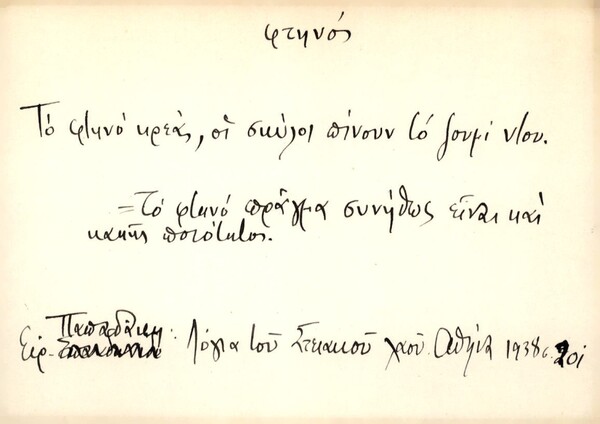 φτηνός
Τό φτηνό κρεάς, οἱ σκύλοι πίνουν τό ζουμί ντου.
= Τό φτηνό πρᾶγμα συνήθως εἶναι καί
κακῆς ποιότητος.
Παπαδάκη:
Εἰρ. Λόγια τοῦ Στειακοῦ λαοῦ. Ἀθήνα 1938 σ. 201